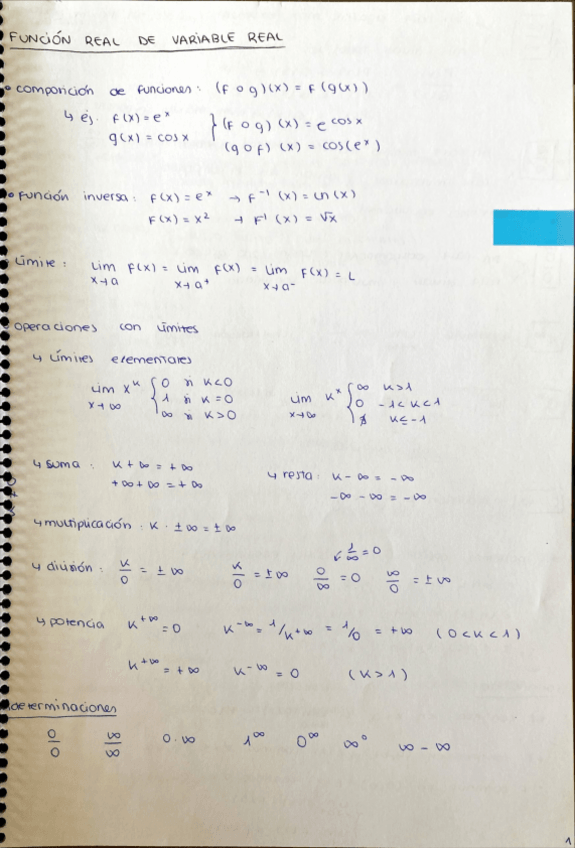 FUNCIÓN REAL DE VARIABLE REAL
• composición de funciones: (f o g)(x) = f(g(x))
↳ ej. f(x) = e^x
g(x) = cos x
} (f o g)(x) = e^cos x
(g o f)(x) = cos(e^x)
• Función inversa: f(x) = e^x → f^-1(x) = Ln(x)
f(x) = x^2 → f^1(x) = √x
• Límite: Lim x→a f(x) = Lim x→a^+ f(x) = Lim x→a^- f(x) = L
• operaciones con Límites
↳ Límites elementales
Lim x→∞ x^k { 0 si k<0
1 si k=0
∞ si k>0
Lim x→∞ k^x { ∞ k>1
0 -1<k<1
∄ k≤-1
↳ suma: k + ∞ = +∞
+∞ + ∞ = +∞
↳ resta: k - ∞ = -∞
-∞ - ∞ = -∞
↳ multiplicación: k · ±∞ = ±∞
↳ división: k/0 = ±∞ k/0 = ±∞ 0/∞ = 0 ∞/0 = ±∞
↙ 1/∞ = 0
↳ potencia k^+∞ = 0 k^-∞ = 1/k^+∞ = 1/0 = +∞ (0<k<1)
k^+∞ = +∞ k^-∞ = 0 (k>1)
determinaciones
0/0 ∞/∞ 0·∞ 1^∞ 0^∞ ∞^0 ∞ - ∞
1